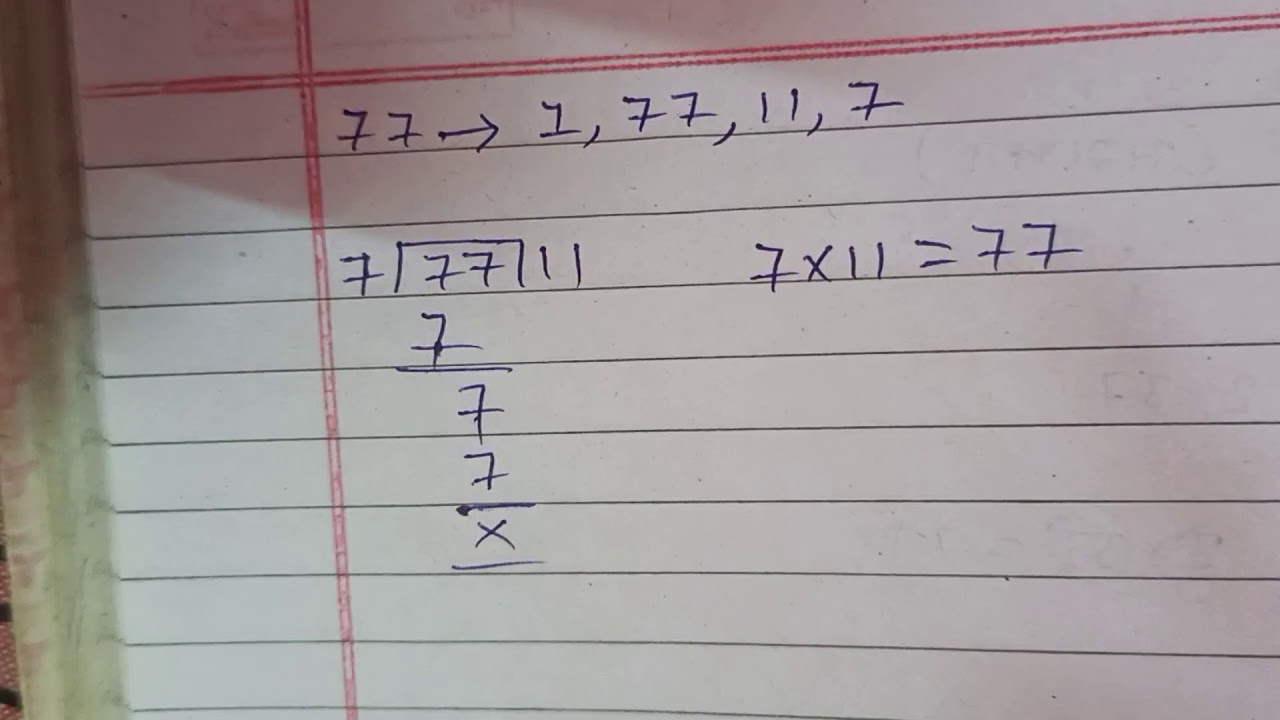 77 → 1, 77, 11, 7
7|77|11 7×11 = 77
7
7
7
×